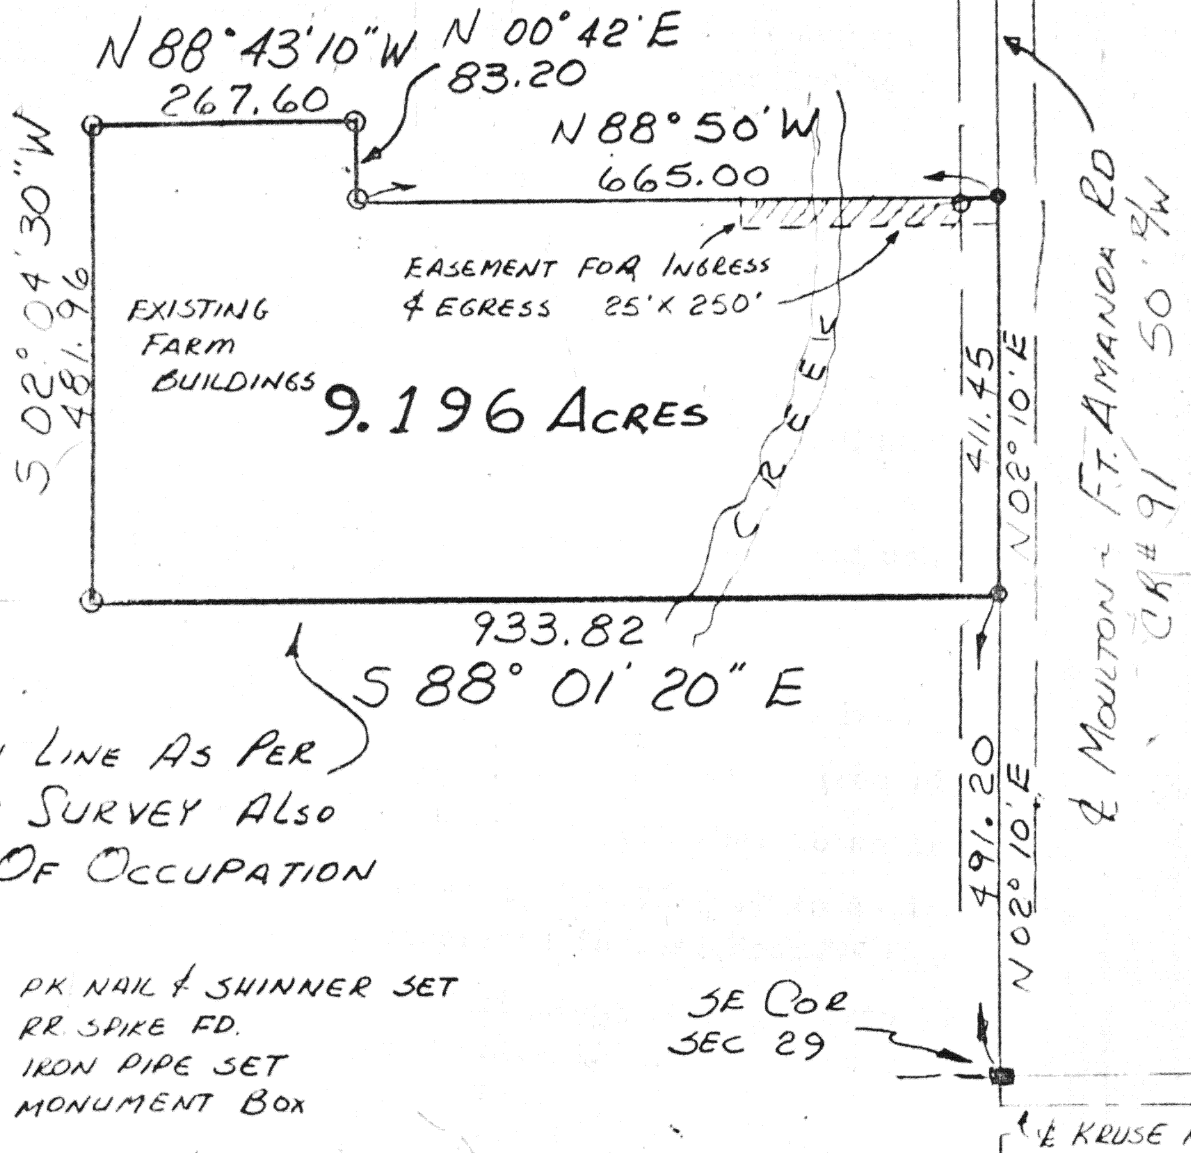 N 88° 43' 10" W
267.60
N 00° 42' E
83.20
N 88° 50' W
665.00
S 02° 04' 30" W
481.96
EASEMENT FOR INGRESS
& EGRESS 25' X 250'
EXISTING
FARM
BUILDINGS
9.196 ACRES
CREEK
411.45
N 02° 10' E
℄ MOULTON - FT. AMANDA RD
CR # 91 50' R/W
933.82
S 88° 01' 20" E
LINE AS PER
SURVEY ALSO
OF OCCUPATION
491.20
N 02° 10' E
PK NAIL & SHINNER SET
RR. SPIKE FD.
IRON PIPE SET
MONUMENT BOX
SE COR
SEC 29
℄ KRUSE